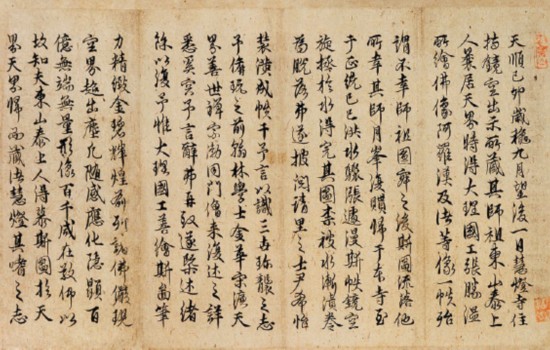 天順己卯歲穐九月望後一日慧燈寺住
持鏡空出示所藏其師祖東山泰上
人蒙居天界時得大理國工張勝溫
所繪佛像阿羅漢及諸等像一帙殆
謂不幸師祖圓寂之後斯圖流落他
所幸其師月峯復購歸于本寺至
于正統己巳洪水驟漲遽漫斯帙鏡空
旋拯於水得完其圖柰被水漸漬卷
為脫落弗遂披閱請里之士尹希怡
裝潢成帙干予言以識三古弥襲之志
予備玩之前翰林學士金華宋濂天
界善世禪宗泐同門僧来復述之詳
悉奚容予言辭弗再叙遂槩述緒
餘以復予惟大理國工善繪斯啚筆
力精緻金碧輝煌前列訥佛儼現
空界超出塵凡隨感應化隱顯百
億無端無量形像百千咸在數佛以
故知夫東山泰上人得慕斯圖於天
界天界歸而藏諸慧燈其嗜之志